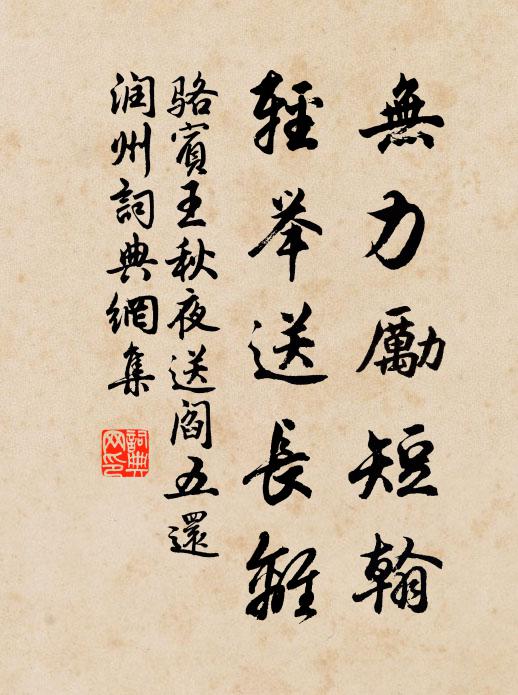 無力勵短翰
輕举送長離
駱賓王秋夜送閻五還
润州詞典網集
詞典
网印